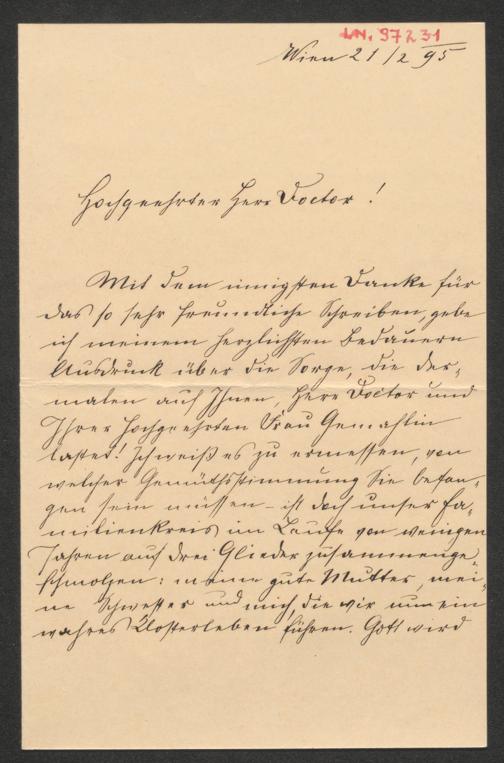 I.N. 97231
Wien 21/2 95
Hochgeehrter Herr Doctor!
Mit dem innigsten Danke für
das so sehr freundliche Schreiben, gebe
ich meinem herzlichsten Bedauern
Ausdruck über die Sorge, die der-
malen auf Ihnen, Herr Doctor und
Ihrer hochgeehrten Frau Gemahlin
lastet! Ich weiß es zu ermessen, von
welcher Gemüthsstimmung Sie befan-
gen sein müssen – ist doch unser Fa-
milienkreis im Laufe von wenigen
Jahren auf drei Glieder zusammenge-
schmolzen: meine gute Mutter, mei-
ne Schwester und mich, die wir nun ein
wahres Klosterleben führen. Gott wird